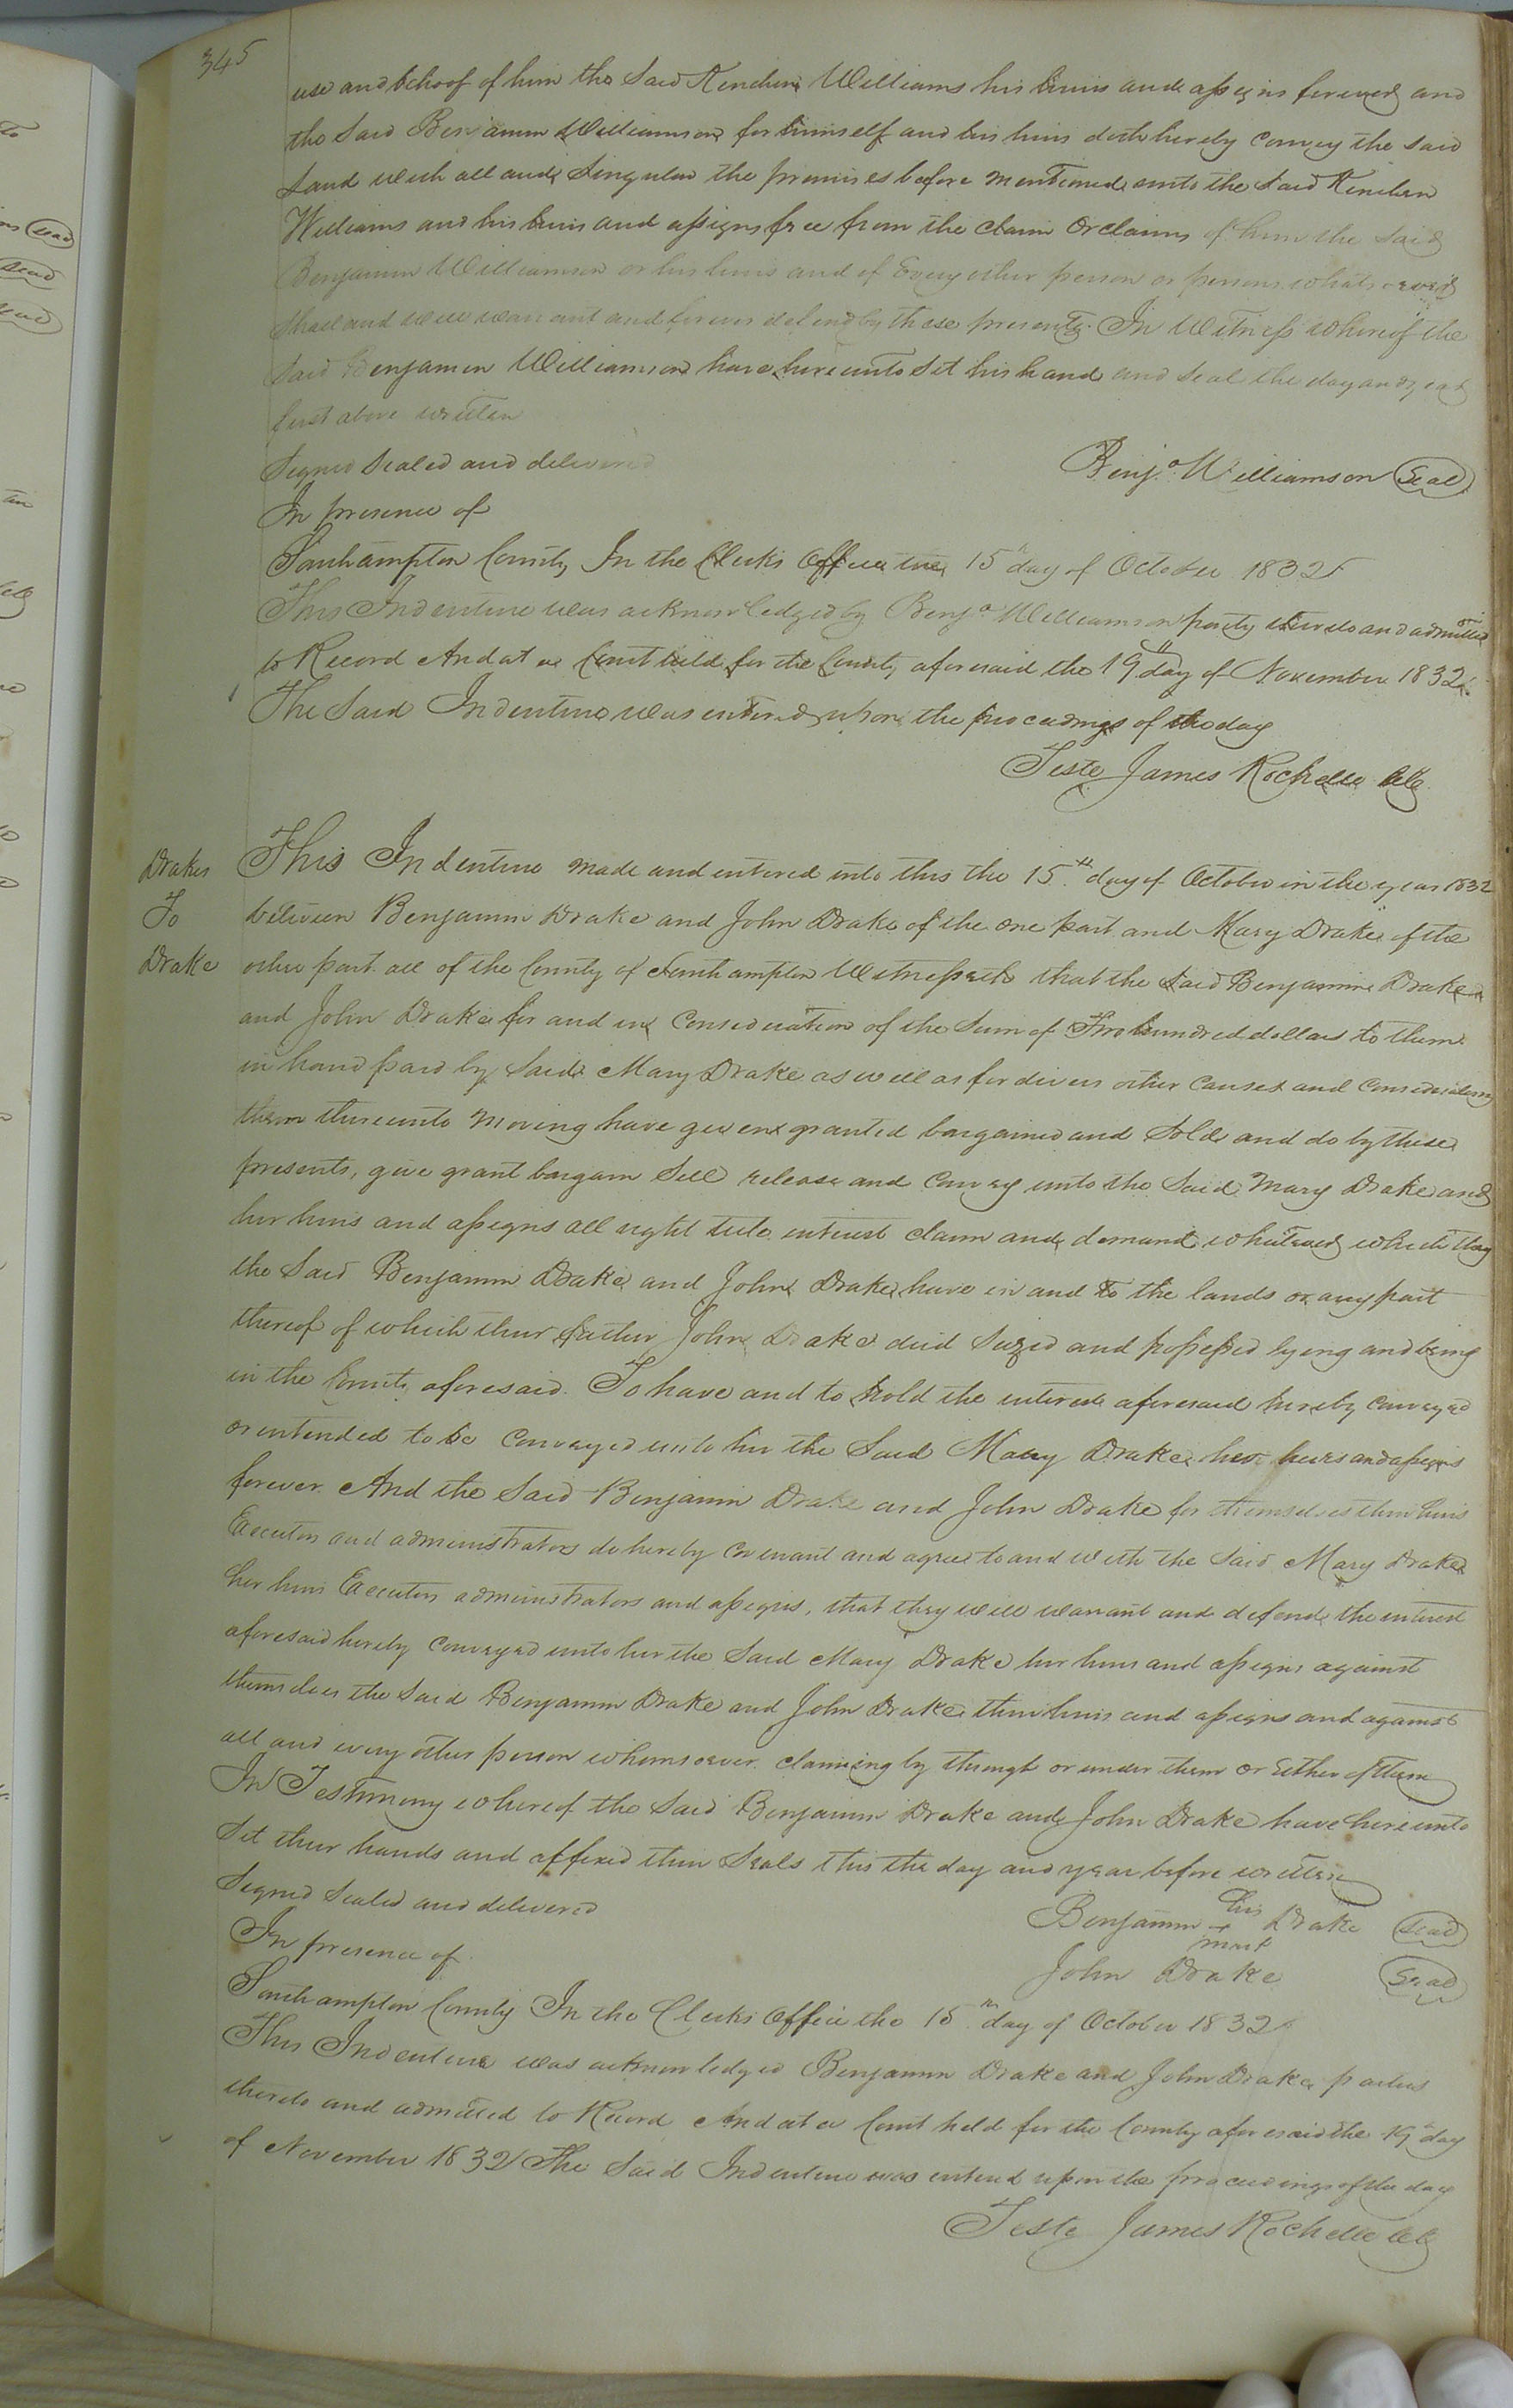 345
use and behoof of him the Said Kinchen Williams his heirs and assigns forever and
the Said Benjamin Williamson for himself and his heirs doth hereby convey the said
Land with all and Singular the premises before mentioned unto the Said Kinchen
Williams and his heirs and assigns free from the claim or claims of him the Said
Benjamin Williamson or his heirs and of Every other person or persons whatsoever
Shall and will warrant and forever defend by these presents. In Witness whereof the
Said Benjamin Williamson have hereunto Set his hand and Seal the day and year
first above written
Signed Sealed and delivered
Benja. Williamson Seal
In presence of
Southampton County In the Clerks Office the 15th day of October 1832
This Indenture was acknowledged by Benja Williamson party thereto and admitted
to Record And at a Court held for the County aforesaid the 19th day of November 1832
The Said Indenture was entered upon the proceedings of the day
Teste James Rochelle Clk
Drakes
To
Drake
This Indenture made and entered into this the 15th day of October in the year 1832
between Benjamin Drake and John Drake of the one part and Mary Drake of the
other part all of the County of Southampton Witnesseth that the Said Benjamin Drake
and John Drake for and in Consideration of the Sum of Two hundred dollars to them
in hand paid by Said Mary Drake as well as for divers other Causes and Considerations
them thereunto moving have given granted bargained and Sold and do by these
presents, give grant bargain Sell release and Convey unto the Said Mary Drake and
her heirs and assigns all right title interest claim and demand whatsoever which they
the Said Benjamin Drake and John Drake have in and to the lands or any part
thereof of which their father John Drake died Seized and possessed lying and being
in the County aforesaid. To have and to hold the interest aforesaid hereby Conveyed
or intended to be Conveyed unto her the Said Mary Drake her heirs and assigns
forever And the Said Benjamin Drake and John Drake for themselves their heirs
Executors and administrators do hereby Covenant and agree to and with the Said Mary Drake
her heirs Executors administrators and assigns, that they will warrant and defend the interest
aforesaid hereby Conveyed unto her the Said Mary Drake her heirs and assigns against
themselves the Said Benjamin Drake and John Drake their heirs and assigns and against
all and every other person whomsoever claiming by through or under them or Either of them
In Testimony whereof the Said Benjamin Drake and John Drake have hereunto
Set their hands and affixed their Seals this the day and year before written
Signed Sealed and delivered
Benjamin his + mark Drake Seal
In presence of
John Drake Seal
Southampton County In the Clerks Office the 15th day of October 1832
This Indenture was acknowledged Benjamin Drake and John Drake parties
thereto and admitted to Record And at a Court held for the County aforesaid the 19th day
of November 1832 The Said Indenture was entered upon the proceedings of the day
Teste James Rochelle Clk